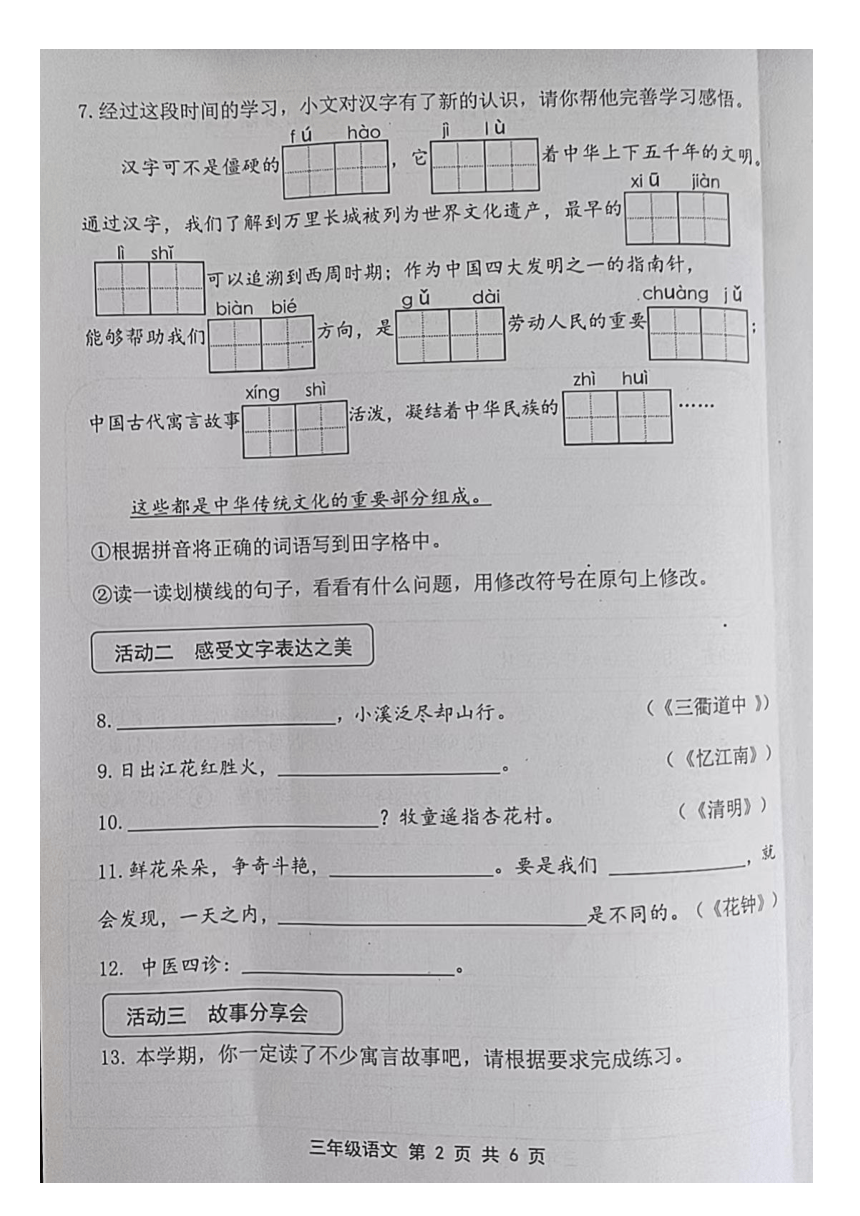 7. 经过这段时间的学习，小文对汉字有了新的认识，请你帮他完善学习感悟。
fú hào jì lù
汉字可不是僵硬的，它着中华上下五千年的文明。
xiū jiàn
通过汉字，我们了解到万里长城被列为世界文化遗产，最早的
lì shǐ
可以追溯到西周时期；作为中国四大发明之一的指南针，
biàn bié gǔ dài chuàng jǔ
能够帮助我们方向，是劳动人民的重要；
xíng shì zhì huì
中国古代寓言故事活泼，凝结着中华民族的……
这些都是中华传统文化的重要部分组成。
①根据拼音将正确的词语写到田字格中。
②读一读划横线的句子，看看有什么问题，用修改符号在原句上修改。
活动二 感受文字表达之美
8.____________，小溪泛尽却山行。 （《三衢道中》）
9.日出江花红胜火，____________。 （《忆江南》）
10.____________？牧童遥指杏花村。 （《清明》）
11.鲜花朵朵，争奇斗艳，____________。要是我们 ____________，就
会发现，一天之内，____________是不同的。（《花钟》）
12. 中医四诊：____________。
活动三 故事分享会
13. 本学期，你一定读了不少寓言故事吧，请根据要求完成练习。
三年级语文 第 2 页 共 6 页